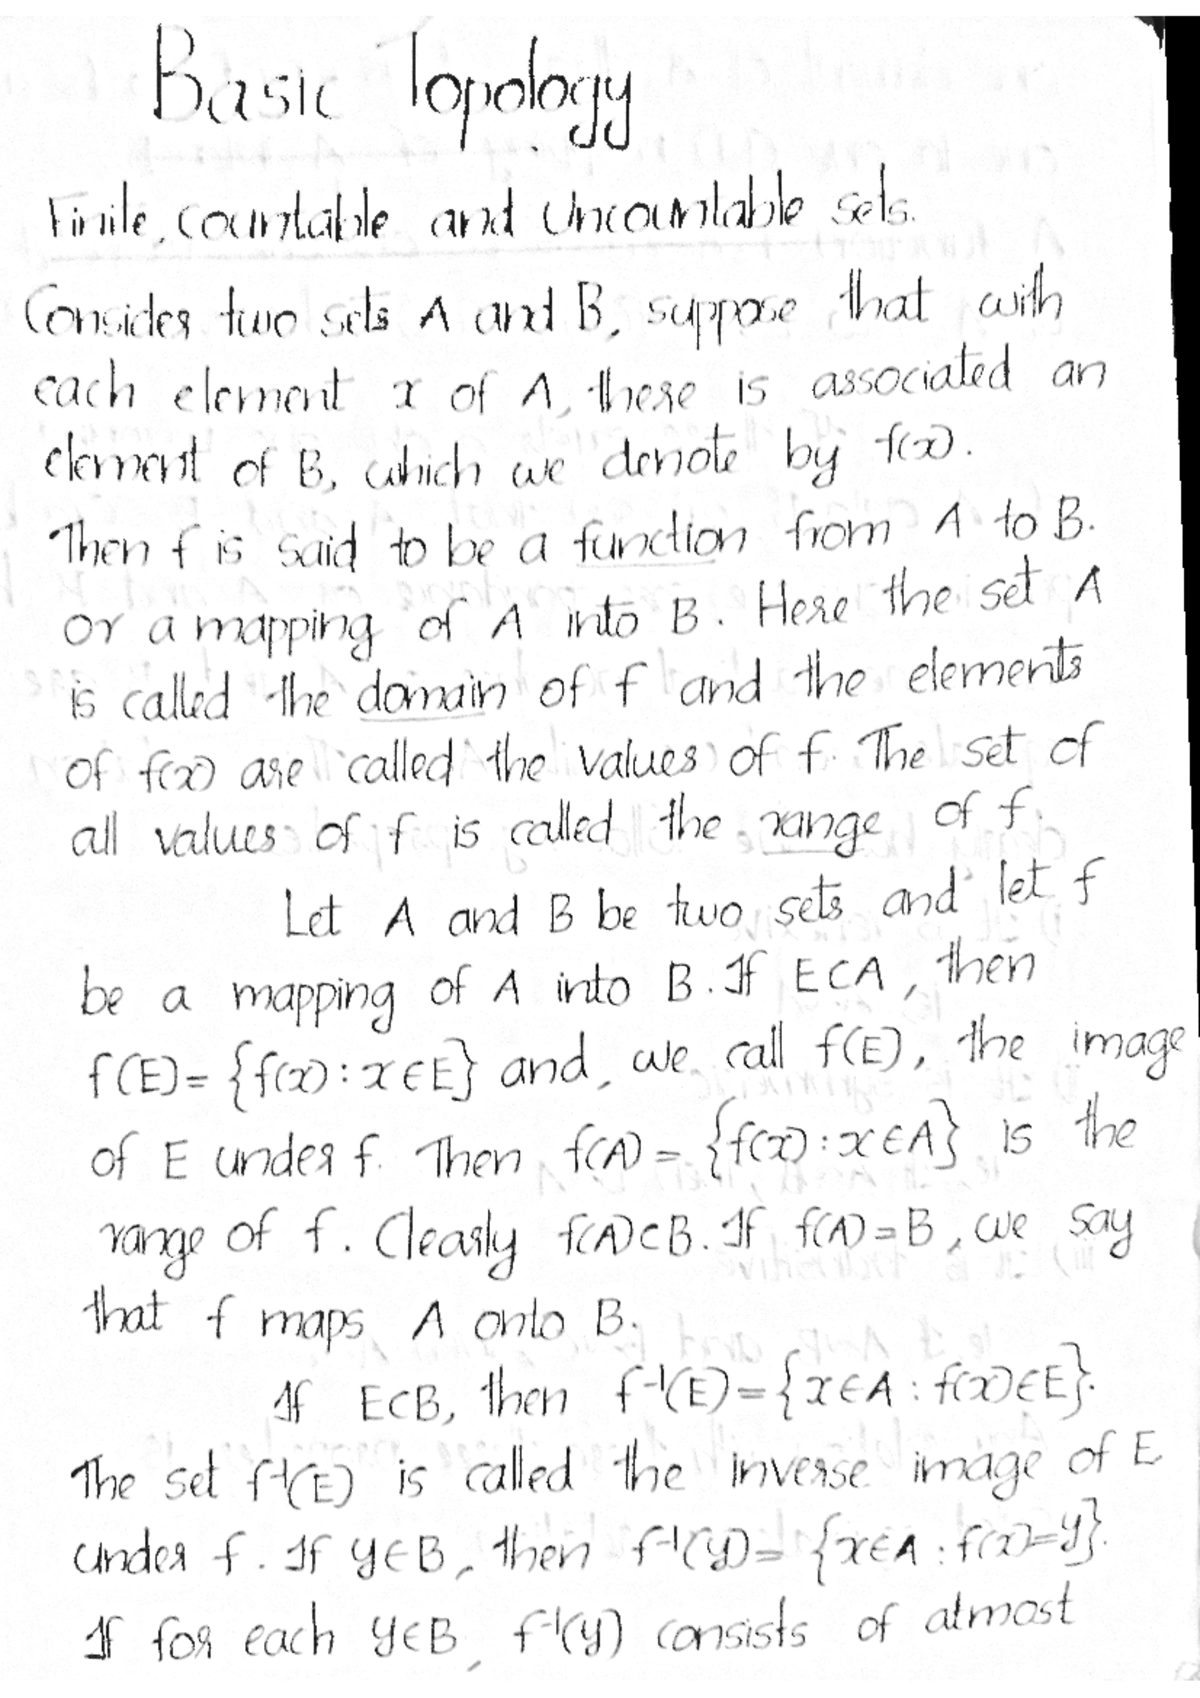 Basic Topology
Finite, countable and Uncountable sets.
Consider two sets A and B, suppose that with
each element x of A, there is associated an
element of B, which we denote by f(x).
Then f is said to be a function from A to B.
or a mapping of A into B. Here the set A
is called the domain of f and the elements
of f(x) are called the values of f. The set of
all values of f is called the range of f.
Let A and B be two sets and let f
be a mapping of A into B. If E⊂A, then
f(E)= {f(x) : x∈E} and, we call f(E), the image
of E under f. Then f(A) = {f(x) : x∈A} is the
range of f. Clearly f(A)⊂B. If f(A)=B, we say
that f maps A onto B.
If E⊂B, then f⁻¹(E)={x∈A : f(x)∈E}.
The set f⁻¹(E) is called the inverse image of E
under f. If y∈B, then f⁻¹(y)= {x∈A : f(x)=y}.
If for each y∈B, f⁻¹(y) consists of atmost